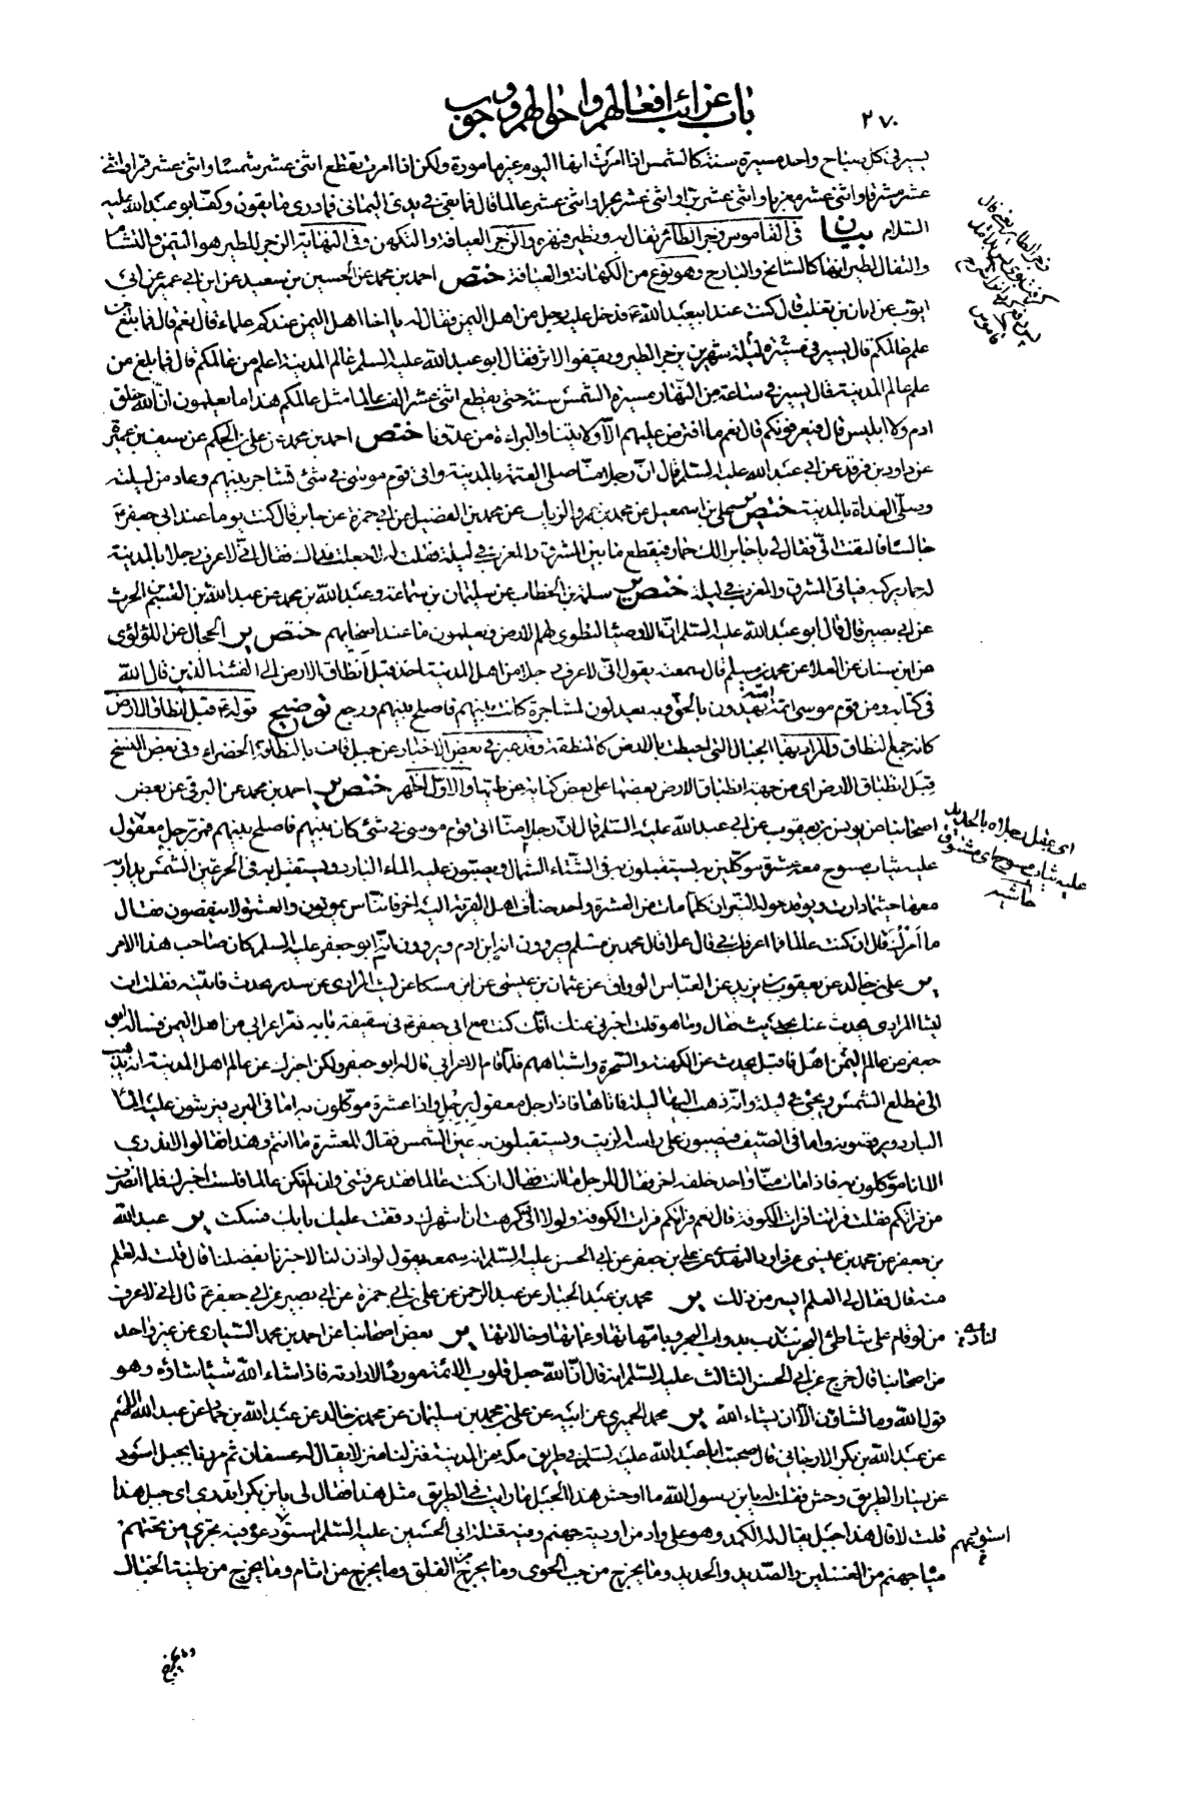 باب غرائب افعالهم واحوالهم ووجوب
٢٧٠
يسير في كل صباح واحد مسيرة سنة كالشمس اذا امرت انها اليوم غير مامورة ولكن اذا امرت يقطع اثنى عشر شمسا واثنى عشر قمرا واثنى
عشر مشرقا واثنى عشر مغربا واثنى عشر برا واثنى عشر بحرا واثنى عشر عالما قال فما بقى في يدى اليمانى فما درى ما يقول وكف ابو عبد الله عليه
السلام بيان في القاموس زجر الطائر تفال به وتطير فنهره والزجر العيافة والتكهن وفي النهاية الزجر للطير هو التيمن والتشام
والتفال لطيرانها كالسانح والبارح وهو نوع من الكهانة والعيافة ختص احمد بن محمد عن الحسين بن سعيد عن ابن ابي عمير عن ابي
ايوب عن ابان بن تغلب قال كنت عند ابي عبد الله ع فدخل عليه رجل من اهل اليمن فقال له يا اخا اهل اليمن عندكم علماء قال نعم قال فما بلغ من
علم عالمكم قال يسير في مسيرة ليلة شهرين يزجر الطير ويقفو الاثر فقال ابو عبد الله عليه السلم عالم المدينة اعلم من عالمكم قال فما بلغ من
علم عالم المدينة قال يسير في ساعة من النهار مسيرة الشمس سنة حتى يقطع اثنى عشر الف عالما مثل عالمكم هذا ما يعلمون ان الله خلق
ادم ولا ابليس قال فيعرفونكم قال نعم ما افترض عليهم الا ولايتنا والبراءة من عدونا ختص احمد بن محمد عن علي بن الحكم عن
عن داود بن فرقد عن ابي عبد الله عليه السلم قال ان رجلا منا صلى العتمة بالمدينة واتى قوم موسى في شئ تشاجر بينهم وعاد من ليلته
وصلى الغداة بالمدينة ختص ير علي بن اسمعيل عن محمد بن عمرو الزيات عن محمد بن الفضيل عن ابي حمزة عن جابر قال كنت يوما عند ابي جعفر ع
جالسا فالتفت الي فقال لي يا جابر الك حمار فيقطع ما بين المشرق والمغرب في ليلة فقلت له لا جعلت فداك فقال اني لاعرف رجلا بالمدينة
له حمار يركبه فياتى المشرق والمغرب في ليلة ختص ير سلمة بن الخطاب عن سليمان بن سماعة وعبد الله بن محمد عن عبد الله بن القسيم بن الحرث
عن ابي بصير قال قال ابو عبد الله عليه السلم ان الاوصياء لتطوى لهم الارض ويعلمون ما عند اصحابهم ختص ير الحجال عن اللؤلؤى
عن ابن سنان عن العلا عن محمد بن مسلم قال سمعته يقول اني لاعرف رجلا من اهل المدينة اخذ قبل انطاق الارض الى الفئة الذين قال الله
في كتابه ومن قوم موسى امة يهدون بالحق وبه يعدلون لمشاجرة كانت بينهم فاصلح بينهم ورجع توضيح قوله ع قبل انطاق الارض
كانه جمع النطاق والمراد بها الجبال التى احيطت بالارض كالمنطقة وقد عبر في بعض الاخبار عن جبل قاف بالنطاقة الخضراء وفي بعض النسخ
قبل انطباق الارض اى من جهة انطباق الارض بعضها على بعض كناية عن طيها والاول اظهر ختص ير احمد بن محمد عن البرقى عن بعض
اصحابنا عن يونس بن يعقوب عن ابي عبد الله عليه السلم قال ان رجلا منا اتى قوم موسى في شئ كان بينهم فاصلح بينهم فمر برجل معقول
عليه ثياب مسوح معه عشرة موكلين به يستقبلون به في الشتاء الشمال ويصبون عليه الماء البارد ويستقبل به في الحر عين الشمس يدار به
معها حيثما دارت ويوقد حوله النيران كلما مات من العشرة واحد اضاف اهل القرية اليه اخر فالناس يموتون والعشرة لا ينقصون فقال
ما امرك قال ان كنت عالما فما اعرفك بي قال علا قال محمد بن مسلم ويروون انه ابن ادم ويروون انه ابو جعفر عليه السلم كان صاحب هذا الامر
ير علي بن خالد عن يعقوب بن يزيد عن العباس الوراق عن عثمان بن عيسى عن ابن مسكان عن ليث المرادى عن سدير بحدث فاتيته فقلت ان
ليثا المرادى حدث عنك بحديث فقال وما هو قلت اخبرني عنك انك كنت مع ابي جعفر ع في سقيفة بابه فمر اعرابي من اهل اليمن فساله ابو
جعفر عن عالم اليمن اهل فاقبل يحدث عن الكهنة والسحرة واشباههم فلما قام الاعرابي قال له ابو جعفر ولكن اخبرك عن عالم اهل المدينة انه يذهب
الى مطلع الشمس ويجئ في ليلة وانه ذهب اليها ليلة فاتاها فاذا رجل معقول برجل واذا عشرة موكلون به اما في البرد فيرشون عليه الماء
البارد ويروحونه واما في الصيف فيصبون على راسه الزيت ويستقبلون به عين الشمس فقال للعشرة ما انتم وما هذا فقالوا لا ندرى
الا انا موكلون به فاذا مات منا واحد خلفه اخر فقال للرجل ما انت فقال ان كنت عالما فقد عرفتنى وان لم تكن عالما فلست اخبرك فلما انصرف
من فراتكم فقلت فراتنا فرات الكوفة قال نعم فراتكم فرات الكوفة ولولا اني كرهت ان اشهرك دققت عليك بابك فسكت ير عبد الله
بن جعفر عن محمد بن عيسى عن داود النهدى عن علي بن جعفر عن ابي الحسن عليه السلم انه سمعه يقول لو اذن لنا لاخبرنا بفضلنا قال قلت له العلم
منه قال فقال لي العلم ايسر من ذلك ير محمد بن عبد الجبار عن عبد الرحمن عن علي بن ابي حمزة عن ابي بصير عن ابي جعفر ع قال اني لاعرف
من لو قام على شاطئ البحر لندب بدواب البحر وبامهاتها وعماتها وخالاتها ير بعض اصحابنا عن احمد بن محمد السيارى عن غير واحد
من اصحابنا قال خرج عن ابي الحسن الثالث عليه السلم انه قال ان الله جعل قلوب الائمة موردا لارادته فاذا شاء الله شيئا شاؤه وهو
قول الله وما تشاؤن الا ان يشاء الله ير محمد الحميرى عن ابيه عن علي بن محمد بن سليمان عن محمد بن خالد عن عبد الله بن حماد عن عبد الله الاصم
عن عبد الله بن بكر الارجاني قال صحبت ابا عبد الله عليه السلم في طريق مكة من المدينة فنزلنا منزلا يقال له عسفان ثم مررنا بجبل اسود
عن يسار الطريق وحش فقلت له يابن رسول الله ما اوحش هذا الجبل ما رايت في الطريق مثل هذا فقال لي يابن بكر اتدرى اى جبل هذا
قلت لا قال هذا جبل يقال له الكمد وهو على واد من اودية جهنم وفيه قتلة ابي الحسين عليه السلم استودعوه فيه تجرى من تحتهم
مياه جهنم من الغسلين والصديد والحديد وما يخرج من جب الحوى وما يخرج من الفلق وما يخرج من اثام وما يخرج من طينة الخبال
اى عقل رجلاه بالحديد
عليه ثياب مسوح اى
حاشيه
استودعهم
وما يخرج